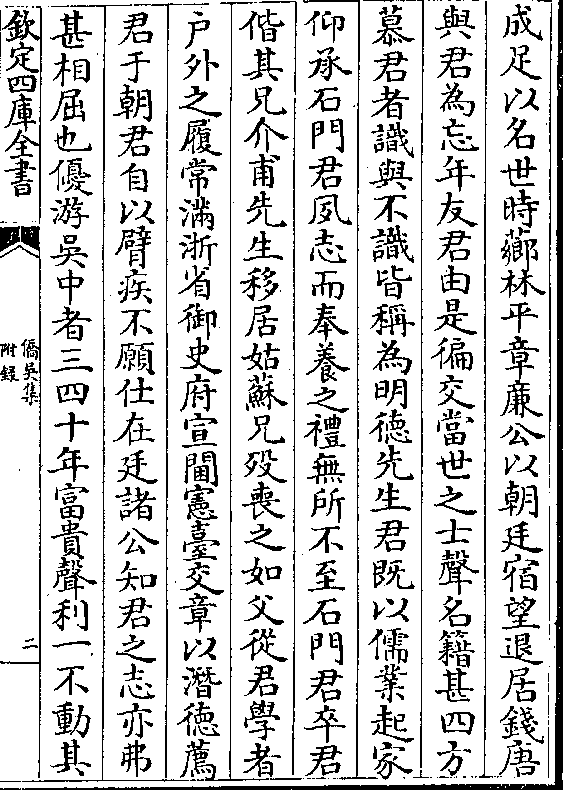 成足以名世時薌林平章廉公以朝廷宿望退居錢唐
與君為忘年友君由是徧交當世之士聲名籍甚四方
慕君者識與不識皆稱為明德先生君既以儒業起家
仰承石門君夙志而奉養之禮無所不至石門君卒君
偕其兄介甫先生移居姑蘇兄歿喪之如父從君學者
户外之履常滿浙省御史府宣閫憲臺交章以潛德薦
君于朝君自以臂疾不願仕在廷諸公知君之志亦弗
甚相屈也優游吳中者三四十年富貴聲利一不動其
欽定四庫全書
僑吳集
附錄
二